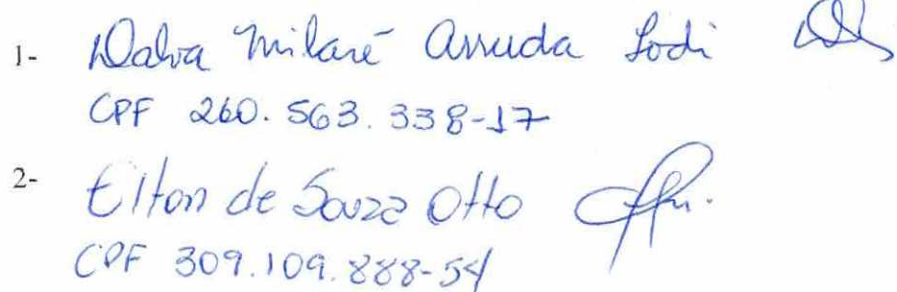 1- Dalva Milaré Arruda Lodi
CPF 260.563.338-17
2- Elton de Souza Otto
CPF 309.109.888-54